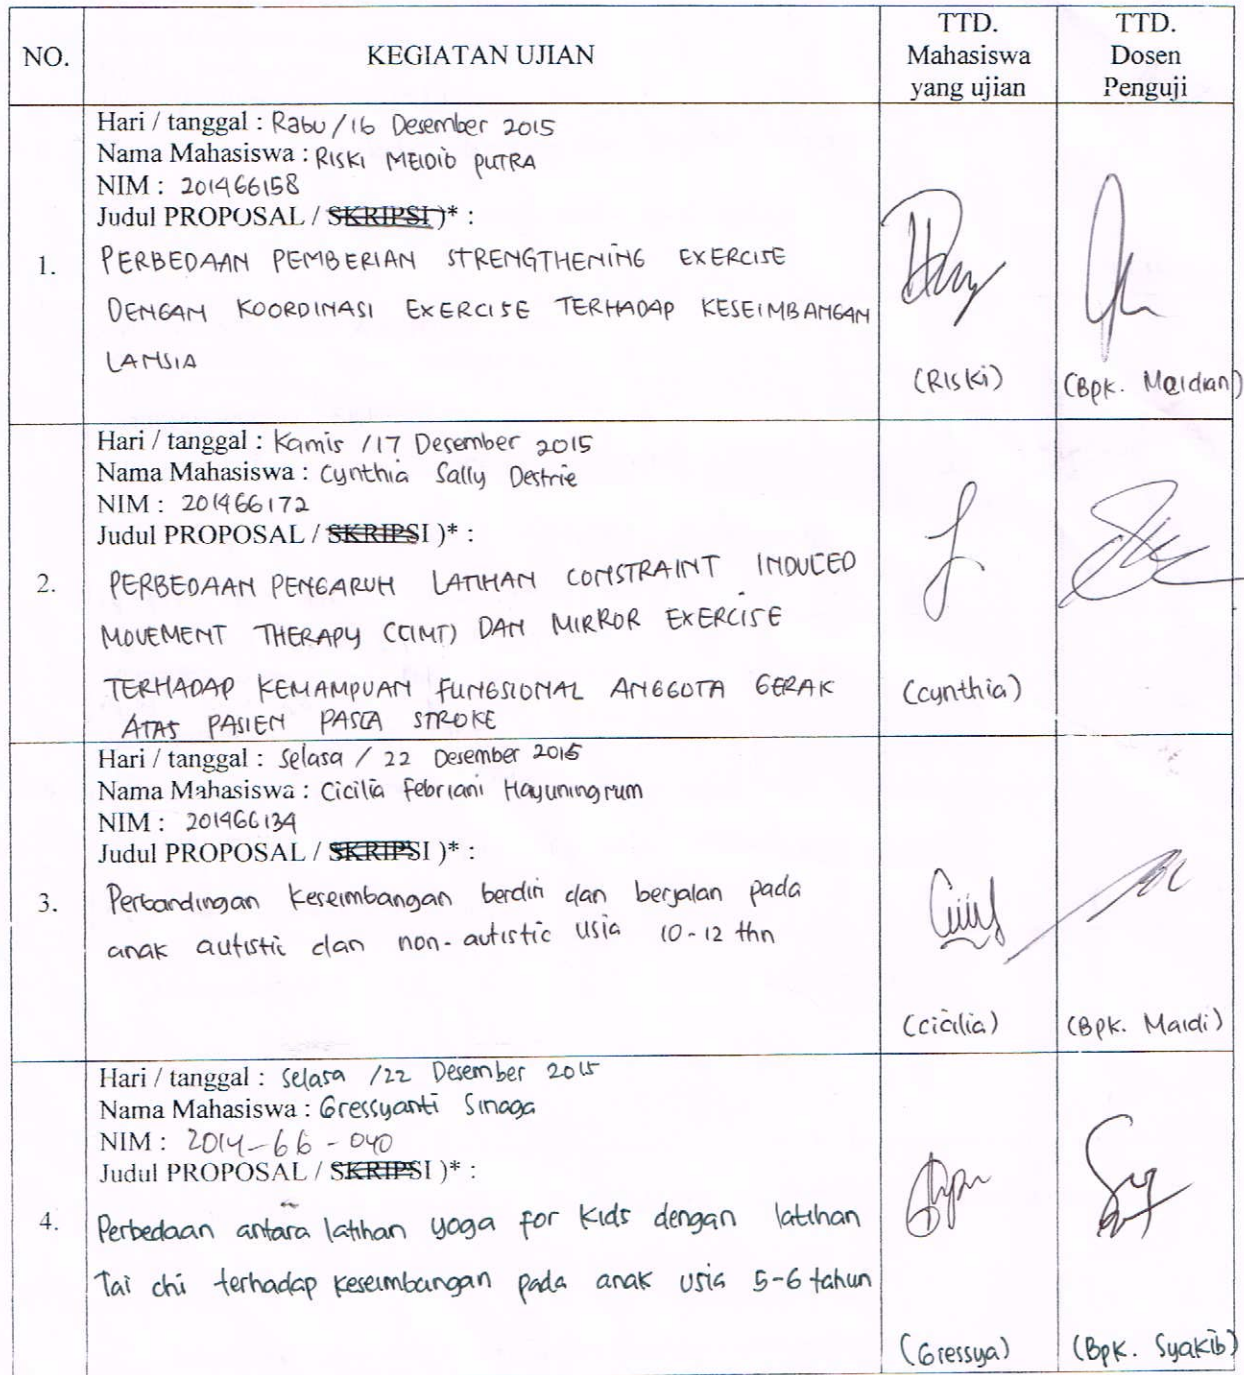 NO.
KEGIATAN UJIAN
TTD.
Mahasiswa
yang ujian
TTD.
Dosen
Penguji
1.
Hari / tanggal : Rabu / 16 Desember 2015
Nama Mahasiswa : RISKI MEIDIO PUTRA
NIM : 201466158
Judul PROPOSAL / SKRIPSI )* :
PERBEDAAN PEMBERIAN STRENGTHENING EXERCISE
DENGAN KOORDINASI EXERCISE TERHADAP KESEIMBANGAN
LANSIA
(Riski)
(Bpk. Meidian)
2.
Hari / tanggal : Kamis / 17 Desember 2015
Nama Mahasiswa : Cynthia Sally Destrie
NIM : 201466172
Judul PROPOSAL / SKRIPSI )* :
PERBEDAAN PENGARUH LATIHAN CONSTRAINT INDUCED
MOVEMENT THERAPY (CIMT) DAN MIRROR EXERCISE
TERHADAP KEMAMPUAN FUNGSIONAL ANGGOTA GERAK
ATAS PASIEN PASCA STROKE
(Cynthia)
3.
Hari / tanggal : Selasa / 22 Desember 2015
Nama Mahasiswa : Cicilia Febriani Hayuningrum
NIM : 201466134
Judul PROPOSAL / SKRIPSI )* :
Perbandingan Keseimbangan berdiri dan berjalan pada
anak autistic dan non-autistic usia 10-12 thn
(Cicilia)
(Bpk. Maidi)
4.
Hari / tanggal : Selasa / 22 Desember 2015
Nama Mahasiswa : Gressyanti Sinaga
NIM : 2014-66-040
Judul PROPOSAL / SKRIPSI )* :
Perbedaan antara latihan yoga for kids dengan latihan
Tai chi terhadap keseimbangan pada anak usia 5-6 tahun
(Gressya)
(Bpk. Syakib)